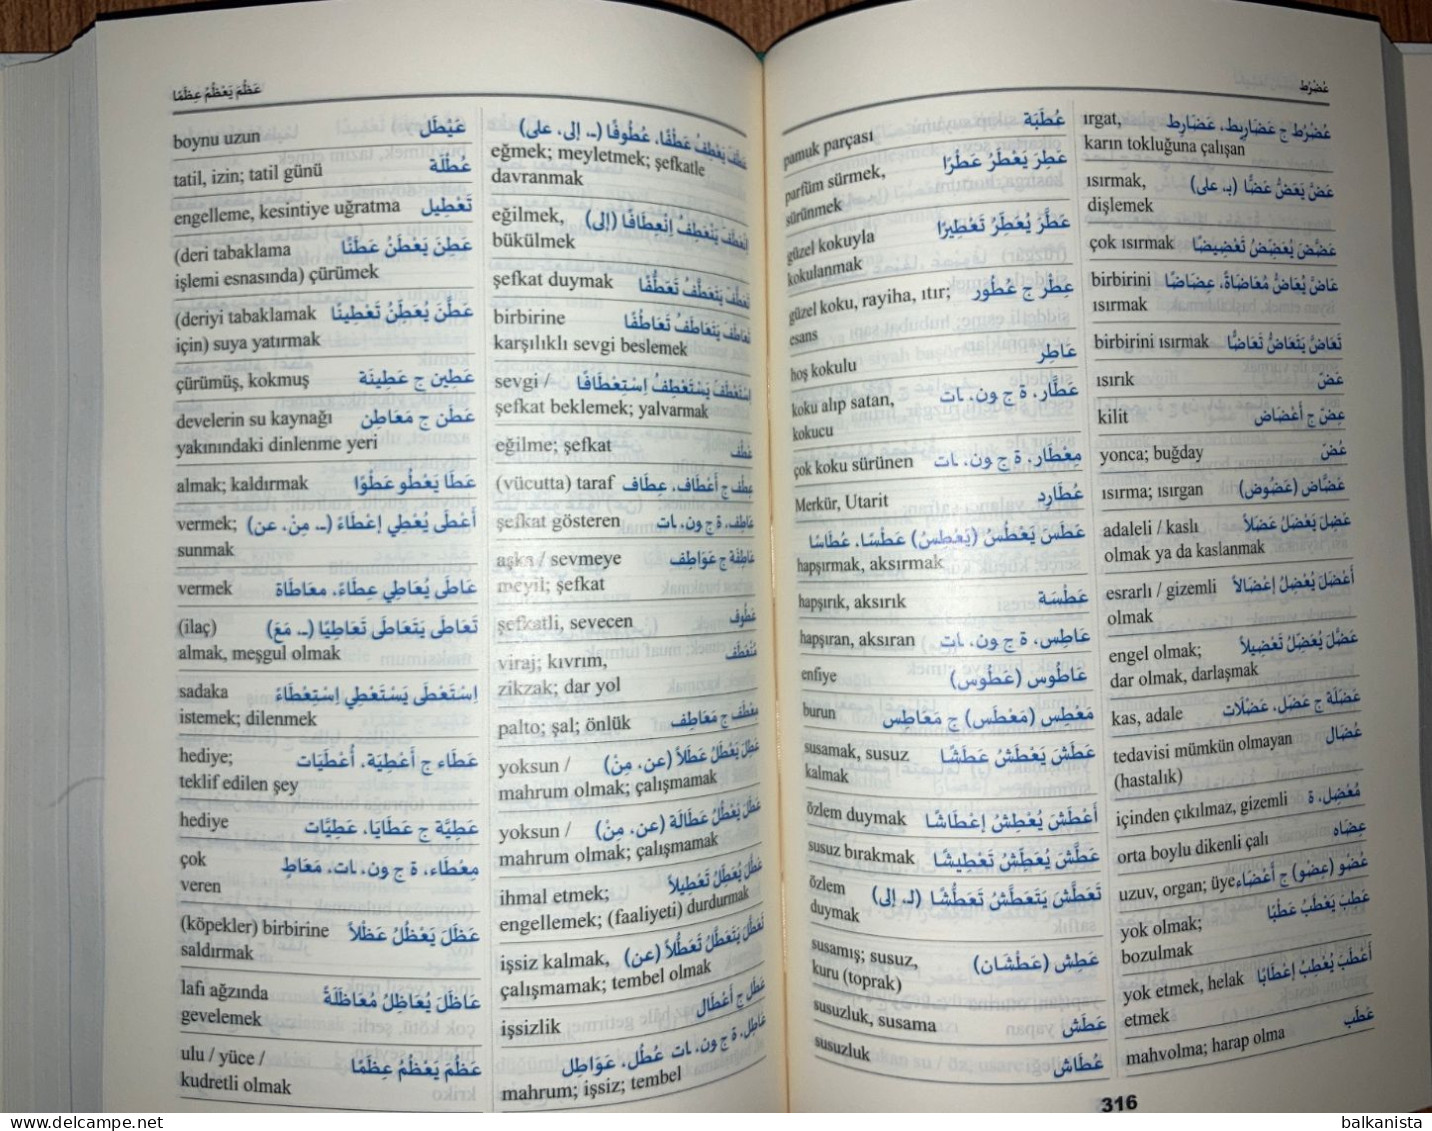 عُضْرُط
عُضْرُط ج عَضَارِيط، عَضَارِط
ırgat,
karın tokluğuna çalışan
عَضَّ يَعَضُّ عَضًّا (بـ، على)
ısırmak,
dişlemek
عَضَّضَ يُعَضِّضُ تَعْضِيضًا
çok ısırmak
عَاضَّ يُعَاضُّ مُعَاضَّةً، عِضَاضًا
birbirini
ısırmak
تَعَاضَّ يَتَعَاضُّ تَعَاضًّا
birbirini ısırmak
عَضّ
ısırık
عِضّ ج أَعْضَاض
kilit
عُضّ
yonca; buğday
عَضَّاض (عَضُوض)
ısırma; ısırgan
عَضِلَ يَعْضَلُ عَضَلاً
adaleli / kaslı
olmak ya da kaslanmak
أَعْضَلَ يُعْضِلُ إِعْضَالاً
esrarlı / gizemli
olmak
عَضَّلَ يُعَضِّلُ تَعْضِيلاً
engel olmak;
dar olmak, darlaşmak
عَضَلَة ج عَضَل، عَضَلَات
kas, adale
عُضَال
tedavisi mümkün olmayan
(hastalık)
مُعْضِل، ة
içinden çıkılmaz, gizemli
عِضَاه
orta boylu dikenli çalı
عُضْو (عِضْو) ج أَعْضَاء
uzuv, organ; üye
عَطِبَ يَعْطَبُ عَطَبًا
yok olmak;
bozulmak
أَعْطَبَ يُعْطِبُ إِعْطَابًا
yok etmek, helak
etmek
عَطَب
mahvolma; harap olma
عُطْبَة
pamuk parçası
عَطِرَ يَعْطَرُ عَطَرًا
parfüm sürmek,
sürünmek
عَطَّرَ يُعَطِّرُ تَعْطِيرًا
güzel kokuyla
kokulanmak
عِطْر ج عُطُور
güzel koku, rayiha, ıtır;
esans
عَاطِر
hoş kokulu
عَطَّار، ة ج ون، ات
koku alıp satan,
kokucu
مِعْطَار، ة ج ون، ات
çok koku sürünen
عُطَارِد
Merkür, Utarit
عَطَسَ يَعْطُسُ (يَعْطِسُ) عَطْسًا، عُطَاسًا
hapşırmak, aksırmak
عَطْسَة
hapşırık, aksırık
عَاطِس، ة ج ون، ات
hapşıran, aksıran
عَاطُوس (عَطُوس)
enfiye
مَعْطِس (مَعْطَس) ج مَعَاطِس
burun
عَطِشَ يَعْطَشُ عَطَشًا
susamak, susuz
kalmak
أَعْطَشَ يُعْطِشُ إِعْطَاشًا
özlem duymak
عَطَّشَ يُعَطِّشُ تَعْطِيشًا
susuz bırakmak
تَعَطَّشَ يَتَعَطَّشُ تَعَطُّشًا (لـ، إلى)
özlem
duymak
عَطِش (عَطْشَان)
susamış; susuz,
kuru (toprak)
عَطَش
susuzluk, susama
عُطَاش
susuzluk
316
عَظُمَ يَعْظُمُ عِظَمًا
عَطَفَ يَعْطِفُ عَطْفًا، عُطُوفًا (ــ، إلى، على)
eğmek; meyletmek; şefkatle
davranmak
اِنْعَطَفَ يَنْعَطِفُ اِنْعِطَافًا (إلى)
eğilmek,
bükülmek
تَعَطَّفَ يَتَعَطَّفُ تَعَطُّفًا
şefkat duymak
تَعَاطَفَ يَتَعَاطَفُ تَعَاطُفًا
birbirine
karşılıklı sevgi beslemek
اِسْتَعْطَفَ يَسْتَعْطِفُ اِسْتِعْطَافًا
sevgi /
şefkat beklemek; yalvarmak
عَطْف
eğilme; şefkat
عِطْف ج أَعْطَاف، عِطَاف
(vücutta) taraf
عَاطِف، ة ج ون، ات
şefkat gösteren
عَاطِفَة ج عَوَاطِف
aşka / sevmeye
meyil; şefkat
عَطُوف
şefkatli, sevecen
مُنْعَطَف
viraj; kıvrım,
zikzak; dar yol
مِعْطَف ج مَعَاطِف
palto; şal; önlük
عَطِلَ يَعْطَلُ عَطَلاً (عن، مِنْ)
yoksun /
mahrum olmak; çalışmamak
عَطَلَ يَعْطُلُ عَطَالَة (عن، مِنْ)
yoksun /
mahrum olmak; çalışmamak
عَطَّلَ يُعَطِّلُ تَعْطِيلاً
ihmal etmek;
engellemek; (faaliyeti) durdurmak
تَعَطَّلَ يَتَعَطَّلُ تَعَطُّلاً (عن)
işsiz kalmak,
çalışmamak; tembel olmak
عَطَل ج أَعْطَال
işsizlik
عَاطِل، ة ج ون، ات عُطَّل، عَوَاطِل
mahrum; işsiz; tembel
عَيْطَل
boynu uzun
عُطْلَة
tatil, izin; tatil günü
تَعْطِيل
engelleme, kesintiye uğratma
عَطِنَ يَعْطَنُ عَطَنًا
(deri tabaklama
işlemi esnasında) çürümek
عَطَّنَ يُعَطِّنُ تَعْطِينًا
(deriyi tabaklamak
için) suya yatırmak
عَطِين ج عَطِينَة
çürümüş, kokmuş
عَطَن ج مَعَاطِن
develerin su kaynağı
yakınındaki dinlenme yeri
عَطَا يَعْطُو عَطْوًا
almak; kaldırmak
أَعْطَى يُعْطِي إِعْطَاءً (ــ، مِنْ، عن)
vermek;
sunmak
عَاطَى يُعَاطِي عِطَاءً، معاطَاة
vermek
تَعَاطَى يَتَعَاطَى تَعَاطِيًا (ــ، مَعَ)
(ilaç)
almak, meşgul olmak
اِسْتَعْطَى يَسْتَعْطِي اِسْتِعْطَاءً
sadaka
istemek; dilenmek
عَطَاء ج أَعْطِيَة، أُعْطِيَات
hediye;
teklif edilen şey
عَطِيَّة ج عَطَايَا، عَطِيَّات
hediye
مِعْطَاء، ة ج ون، ات، مَعَاطٍ
çok
veren
عَظَلَ يَعْظُلُ عَظْلاً
(köpekler) birbirine
saldırmak
عَاظَلَ يُعَاظِلُ مُعَاظَلَةً
lafı ağzında
gevelemek
عَظُمَ يَعْظُمُ عِظَمًا
ulu / yüce /
kudretli olmak
balkanista